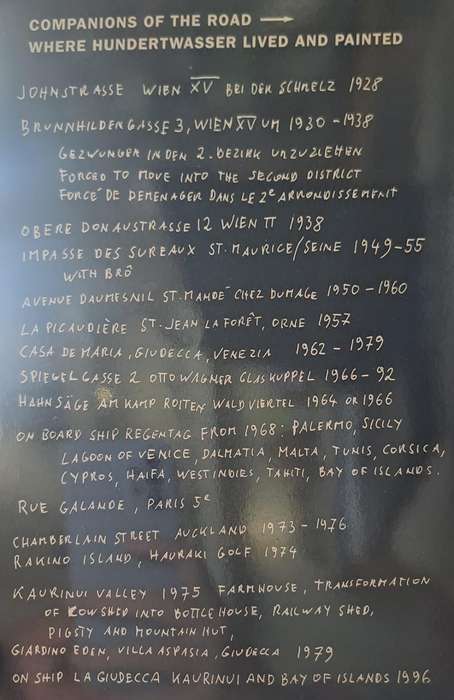 COMPANIONS OF THE ROAD →
WHERE HUNDERTWASSER LIVED AND PAINTED
JOHNSTRASSE WIEN XV BEI DER SCHMELZ 1928
BRUNNHILDENGASSE 3, WIEN XV UM 1930 - 1938
GEZWUNGEN IN DEN 2. BEZIRK UMZUZIEHEN
FORCED TO MOVE INTO THE SECOND DISTRICT
FORCÉ DE DEMENAGER DANS LE 2e ARRONDISSEMENT
OBERE DONAUSTRASSE 12 WIEN II 1938
IMPASSE DES SUREAUX ST. MAURICE/SEINE 1949-55
WITH BRÔ
AVENUE DAUMESNIL ST. MANDÉ CHEZ DUMAGE 1950 - 1960
LA PICAUDIÈRE ST. JEAN LA FORÊT, ORNE 1957
CASA DE MARIA, GIUDECCA, VENEZIA 1962 - 1979
SPIEGELGASSE 2 OTTO WAGNER GLASKUPPEL 1966 - 92
HAHNSÄGE AM KAMP ROITEN WALDVIERTEL 1964 OR 1966
ON BOARD SHIP REGENTAG FROM 1968: PALERMO, SICILY
LAGOON OF VENICE, DALMATIA, MALTA, TUNIS, CORSICA,
CYPROS, HAIFA, WESTINDIES, TAHITI, BAY OF ISLANDS.
RUE GALANDE, PARIS 5e
CHAMBERLAIN STREET AUCKLAND 1973 - 1976
RAKINO ISLAND, HAURAKI GOLF 1974
KAURINUI VALLEY 1975 FARMHOUSE, TRANSFORMATION
OF COWSHED INTO BOTTLEHOUSE, RAILWAY SHED,
PIGSTY AND MOUNTAIN HUT,
GIARDINO EDEN, VILLA ASPASIA, GIUDECCA 1979
ON SHIP LA GIUDECCA KAURINUI AND BAY OF ISLANDS 1996